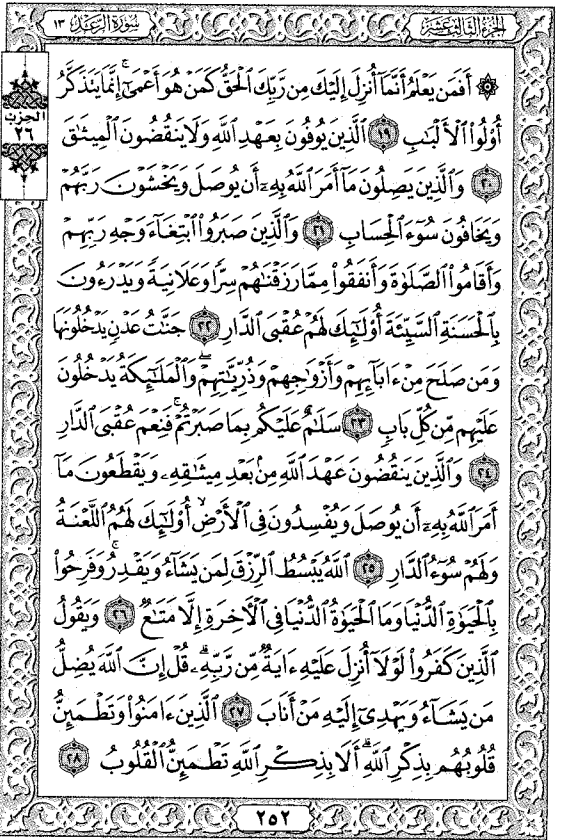 سُورَةُ الرَّعْدِ ١٣
الجُزْءُ الثَّالِثَ عَشَرَ
الحزب
٢٦
۞ أَفَمَن يَعْلَمُ أَنَّمَآ أُنزِلَ إِلَيْكَ مِن رَّبِّكَ ٱلْحَقُّ كَمَنْ هُوَ أَعْمَىٰٓ ۚ إِنَّمَا يَتَذَكَّرُ
أُو۟لُوا۟ ٱلْأَلْبَٰبِ ١٩ ٱلَّذِينَ يُوفُونَ بِعَهْدِ ٱللَّهِ وَلَا يَنقُضُونَ ٱلْمِيثَٰقَ
٢٠ وَٱلَّذِينَ يَصِلُونَ مَآ أَمَرَ ٱللَّهُ بِهِۦٓ أَن يُوصَلَ وَيَخْشَوْنَ رَبَّهُمْ
وَيَخَافُونَ سُوٓءَ ٱلْحِسَابِ ٢١ وَٱلَّذِينَ صَبَرُوا۟ ٱبْتِغَآءَ وَجْهِ رَبِّهِمْ
وَأَقَامُوا۟ ٱلصَّلَوٰةَ وَأَنفَقُوا۟ مِمَّا رَزَقْنَٰهُمْ سِرًّا وَعَلَانِيَةً وَيَدْرَءُونَ
بِٱلْحَسَنَةِ ٱلسَّيِّئَةَ أُو۟لَٰٓئِكَ لَهُمْ عُقْبَى ٱلدَّارِ ٢٢ جَنَّٰتُ عَدْنٍ يَدْخُلُونَهَا
وَمَن صَلَحَ مِنْ ءَابَآئِهِمْ وَأَزْوَٰجِهِمْ وَذُرِّيَّٰتِهِمْ ۖ وَٱلْمَلَٰٓئِكَةُ يَدْخُلُونَ
عَلَيْهِم مِّن كُلِّ بَابٍ ٢٣ سَلَٰمٌ عَلَيْكُم بِمَا صَبَرْتُمْ ۚ فَنِعْمَ عُقْبَى ٱلدَّارِ
٢٤ وَٱلَّذِينَ يَنقُضُونَ عَهْدَ ٱللَّهِ مِنۢ بَعْدِ مِيثَٰقِهِۦ وَيَقْطَعُونَ مَآ
أَمَرَ ٱللَّهُ بِهِۦٓ أَن يُوصَلَ وَيُفْسِدُونَ فِى ٱلْأَرْضِ ۙ أُو۟لَٰٓئِكَ لَهُمُ ٱللَّعْنَةُ
وَلَهُمْ سُوٓءُ ٱلدَّارِ ٢٥ ٱللَّهُ يَبْسُطُ ٱلرِّزْقَ لِمَن يَشَآءُ وَيَقْدِرُ ۚ وَفَرِحُوا۟
بِٱلْحَيَوٰةِ ٱلدُّنْيَا وَمَا ٱلْحَيَوٰةُ ٱلدُّنْيَا فِى ٱلْءَاخِرَةِ إِلَّا مَتَٰعٌ ٢٦ وَيَقُولُ
ٱلَّذِينَ كَفَرُوا۟ لَوْلَآ أُنزِلَ عَلَيْهِ ءَايَةٌ مِّن رَّبِّهِۦ ۗ قُلْ إِنَّ ٱللَّهَ يُضِلُّ
مَن يَشَآءُ وَيَهْدِىٓ إِلَيْهِ مَنْ أَنَابَ ٢٧ ٱلَّذِينَ ءَامَنُوا۟ وَتَطْمَئِنُّ
قُلُوبُهُم بِذِكْرِ ٱللَّهِ ۗ أَلَا بِذِكْرِ ٱللَّهِ تَطْمَئِنُّ ٱلْقُلُوبُ ٢٨
٢٥٢